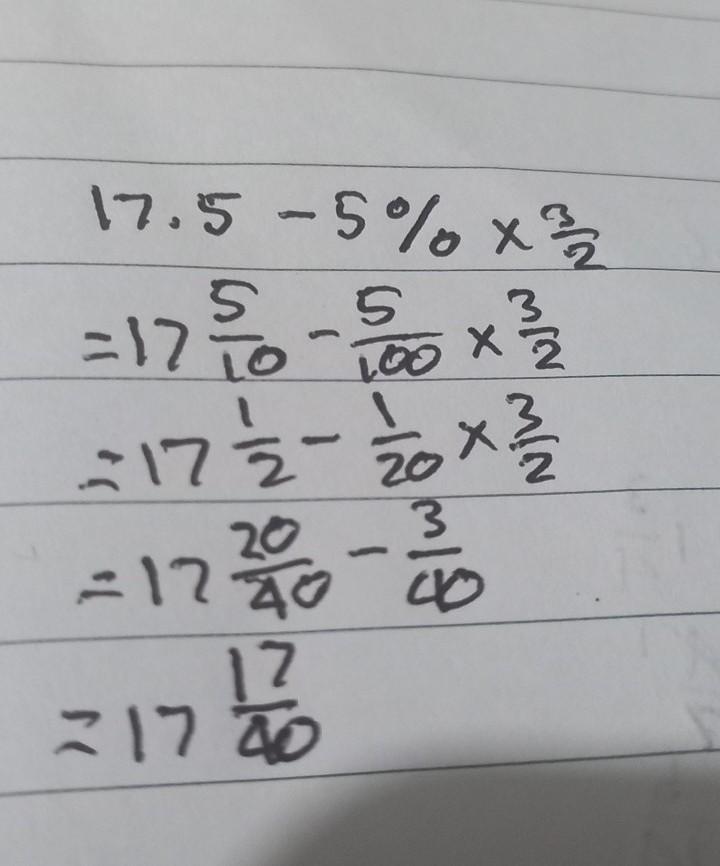 17.5 - 5% × 3/2
= 17 5/10 - 5/100 × 3/2
= 17 1/2 - 1/20 × 3/2
= 17 20/40 - 3/40
= 17 17/40